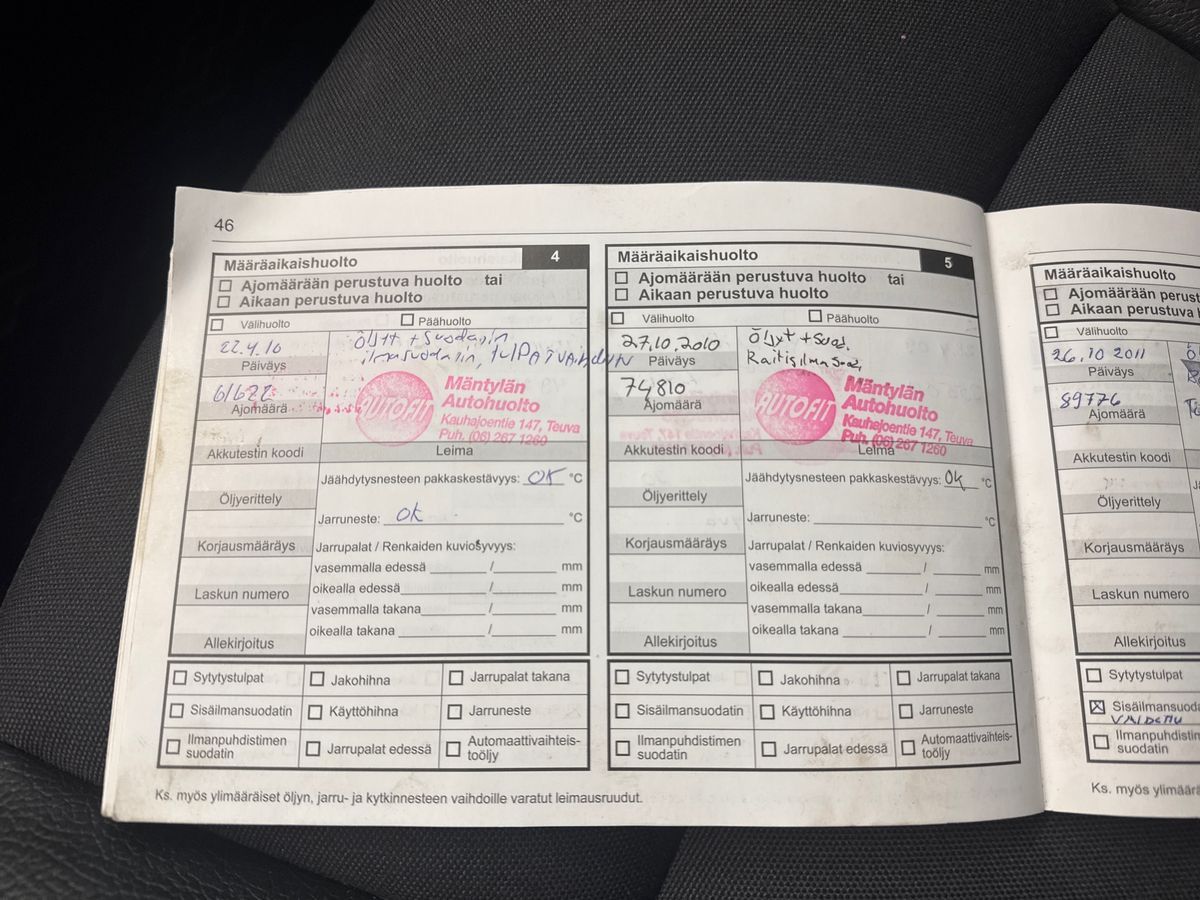 46
Määräaikaishuolto 4
Ajomäärään perustuva huolto tai
Aikaan perustuva huolto
Välihuolto Päähuolto
22.4.10
Päiväys
Öljyt + Suodatin
ilmasuodatin, tulpat vaihdettu
61622
Ajomäärä
AUTOFIT
Mäntylän
Autohuolto
Kauhajoentie 147, Teuva
Puh. (06) 267 1260
Akkutestin koodi
Leima
Öljyerittely
Jäähdytysnesteen pakkaskestävyys: OK °C
Jarruneste: OK °C
Korjausmääräys
Jarrupalat / Renkaiden kuviosyvyys:
vasemmalla edessä / mm
oikealla edessä / mm
Laskun numero
vasemmalla takana / mm
oikealla takana / mm
Allekirjoitus
Sytytystulpat Jakohihna Jarrupalat takana
Sisäilmansuodatin Käyttöhihna Jarruneste
Ilmanpuhdistimen suodatin Jarrupalat edessä Automaattivaihteis-
toöljy
Määräaikaishuolto 5
Ajomäärään perustuva huolto tai
Aikaan perustuva huolto
Välihuolto Päähuolto
27.10.2010
Päiväys
Öljyt + Suod.
Raitisilma Suod.
74810
Ajomäärä
AUTOFIT
Mäntylän
Autohuolto
Kauhajoentie 147, Teuva
Puh. (06) 267 1260
Akkutestin koodi
Leima
Öljyerittely
Jäähdytysnesteen pakkaskestävyys: Ok °C
Jarruneste: °C
Korjausmääräys
Jarrupalat / Renkaiden kuviosyvyys:
vasemmalla edessä / mm
oikealla edessä / mm
Laskun numero
vasemmalla takana / mm
oikealla takana / mm
Allekirjoitus
Sytytystulpat Jakohihna Jarrupalat takana
Sisäilmansuodatin Käyttöhihna Jarruneste
Ilmanpuhdistimen suodatin Jarrupalat edessä Automaattivaihteis-
toöljy
Ks. myös ylimääräiset öljyn, jarru- ja kytkinnesteen vaihdoille varatut leimausruudut.
Määräaikaishuolto
Ajomäärään perust
Aikaan perustuva
Välihuolto
26.10 2011
Päiväys
89776
Ajomäärä
Akkutestin koodi
Öljyerittely
Korjausmääräys
Laskun numero
Allekirjoitus
Sytytystulpat
Sisäilmansuoda
Ilmanpuhdistim
suodatin
Ks. myös ylimäärä